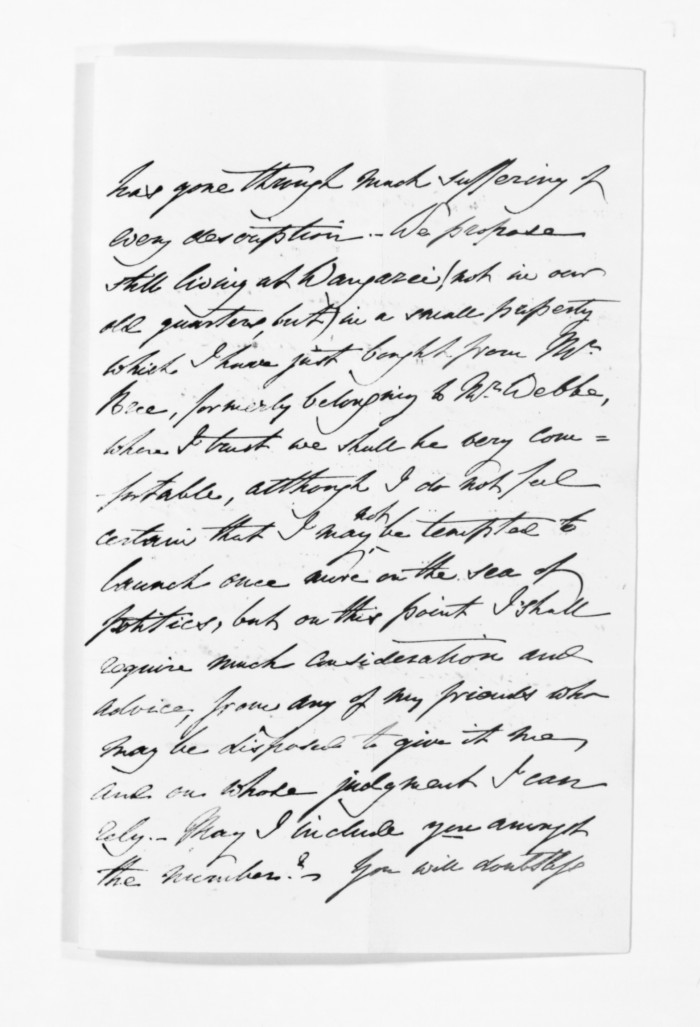 has gone through much suffering of
every description. - We propose
still living at Wangarei (not in our
old quarters but) in a small property
which I have just bought from Mr.
Rece, formerly belonging to Mr. Webbe,
where I trust we shall be very com=
-fortable, although I do not feel
certain that I may not be tempted to
launch once more on the sea of
politics, but on this point I shall
require much consideration and
advice, from any of my friends who
may be disposed to give it me,
and on whose judgment I can
rely. - May I include you amongst
the number? - You will doubtless